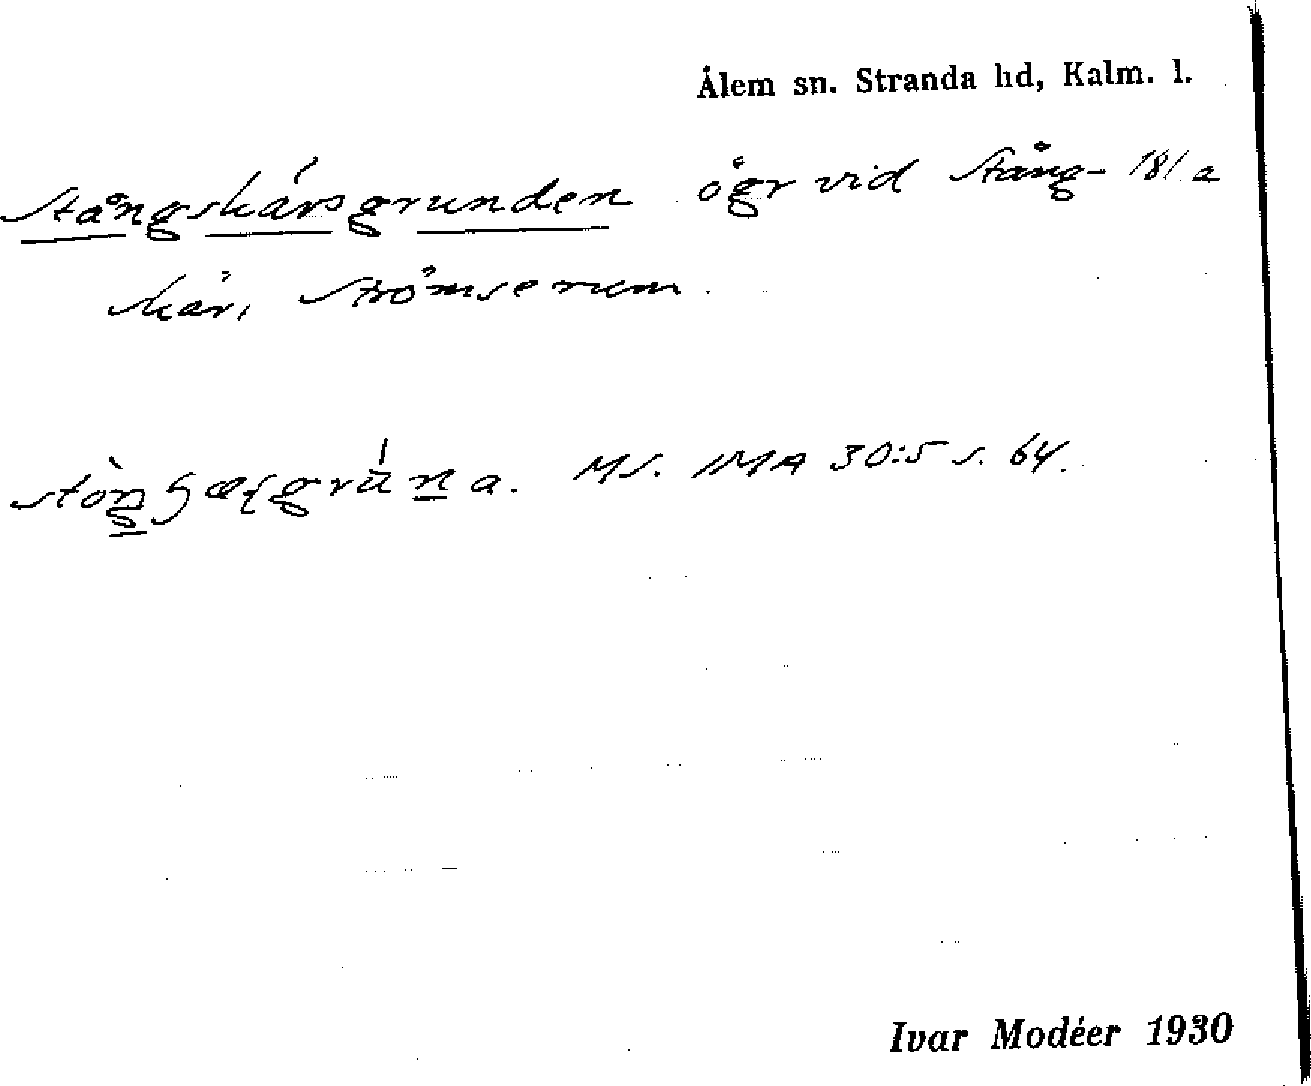 Ålem sn. Stranda hd, Kalm. l.
Stångskärsgrunden ögr vid Stång- 181 a
skär, Strömserum.
MS. IMA 30:5 s. 64.
Ivar Modéer 1930